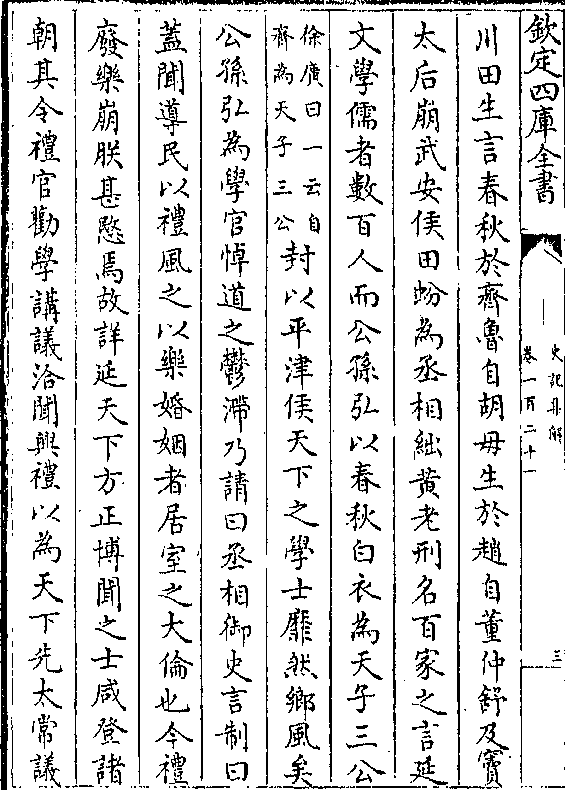 欽定四庫全書
史記集解
卷一百二十一
三
川田生言春秋於齊魯自胡毋生於趙自董仲舒及竇
太后崩武安侯田蚡為丞相絀黃老刑名百家之言延
文學儒者數百人而公孫弘以春秋白衣為天子三公
徐廣曰一云自
齊為天子三公
封以平津侯天下之學士靡然鄉風矣
公孫弘為學官悼道之鬱滯乃請曰丞相御史言制曰
蓋聞導民以禮風之以樂婚姻者居室之大倫也今禮
廢樂崩朕甚愍焉故詳延天下方正博聞之士咸登諸
朝其令禮官勸學講議洽聞興禮以為天下先太常議